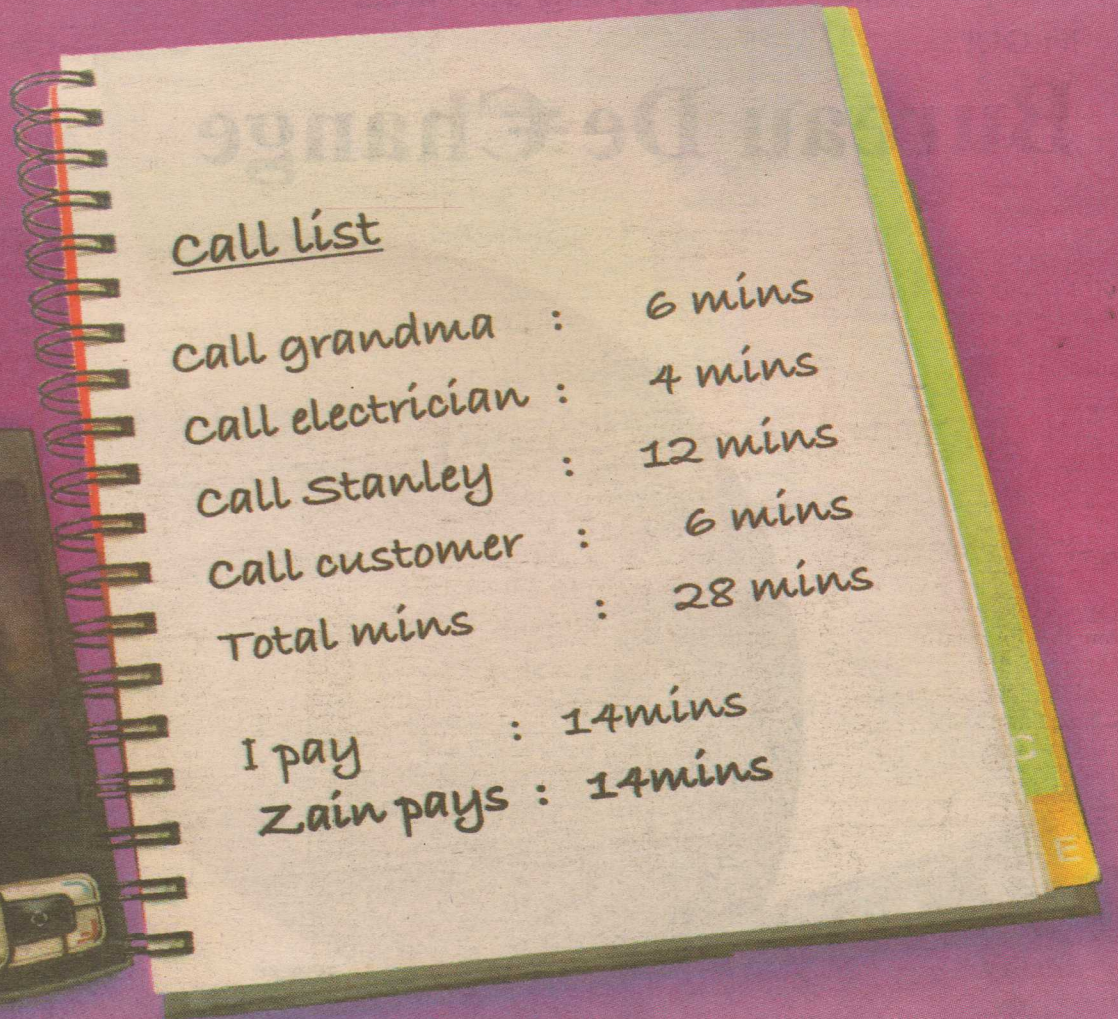 Bureau De Change
Call list
Call grandma : 6 mins
Call electrician : 4 mins
Call Stanley : 12 mins
Call customer : 6 mins
Total mins : 28 mins
I pay : 14mins
Zain pays : 14mins
C
E